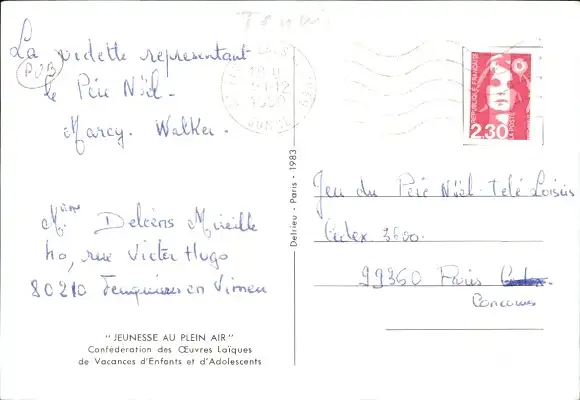 Tennis
La vedette representant
PUB
le Père Noël.
Marcy. Walker.
REPUBLIQUE FRANÇAISE
LA POSTE
2,30
Delrieu - Paris - 1983
Jeu du Père Noël. Télé Loisirs
Cedex 3600.
99360 Paris
Concours
Mme Delcens Mireille
40, rue Victor Hugo
80210 Feuquières en Vimeu
"JEUNESSE AU PLEIN AIR"
Confédération des Œuvres Laïques
de Vacances d'Enfants et d'Adolescents